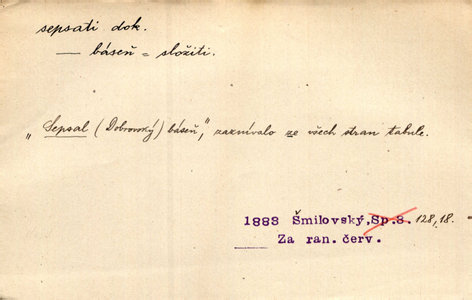 sepsati dok.
— báseň = složiti.
„Sepsal (Dobrovský) báseň," zaznívalo ze všech stran tabule.
1883 Šmilovský, Sp. 8. 128, 18.
Za ran. červ.